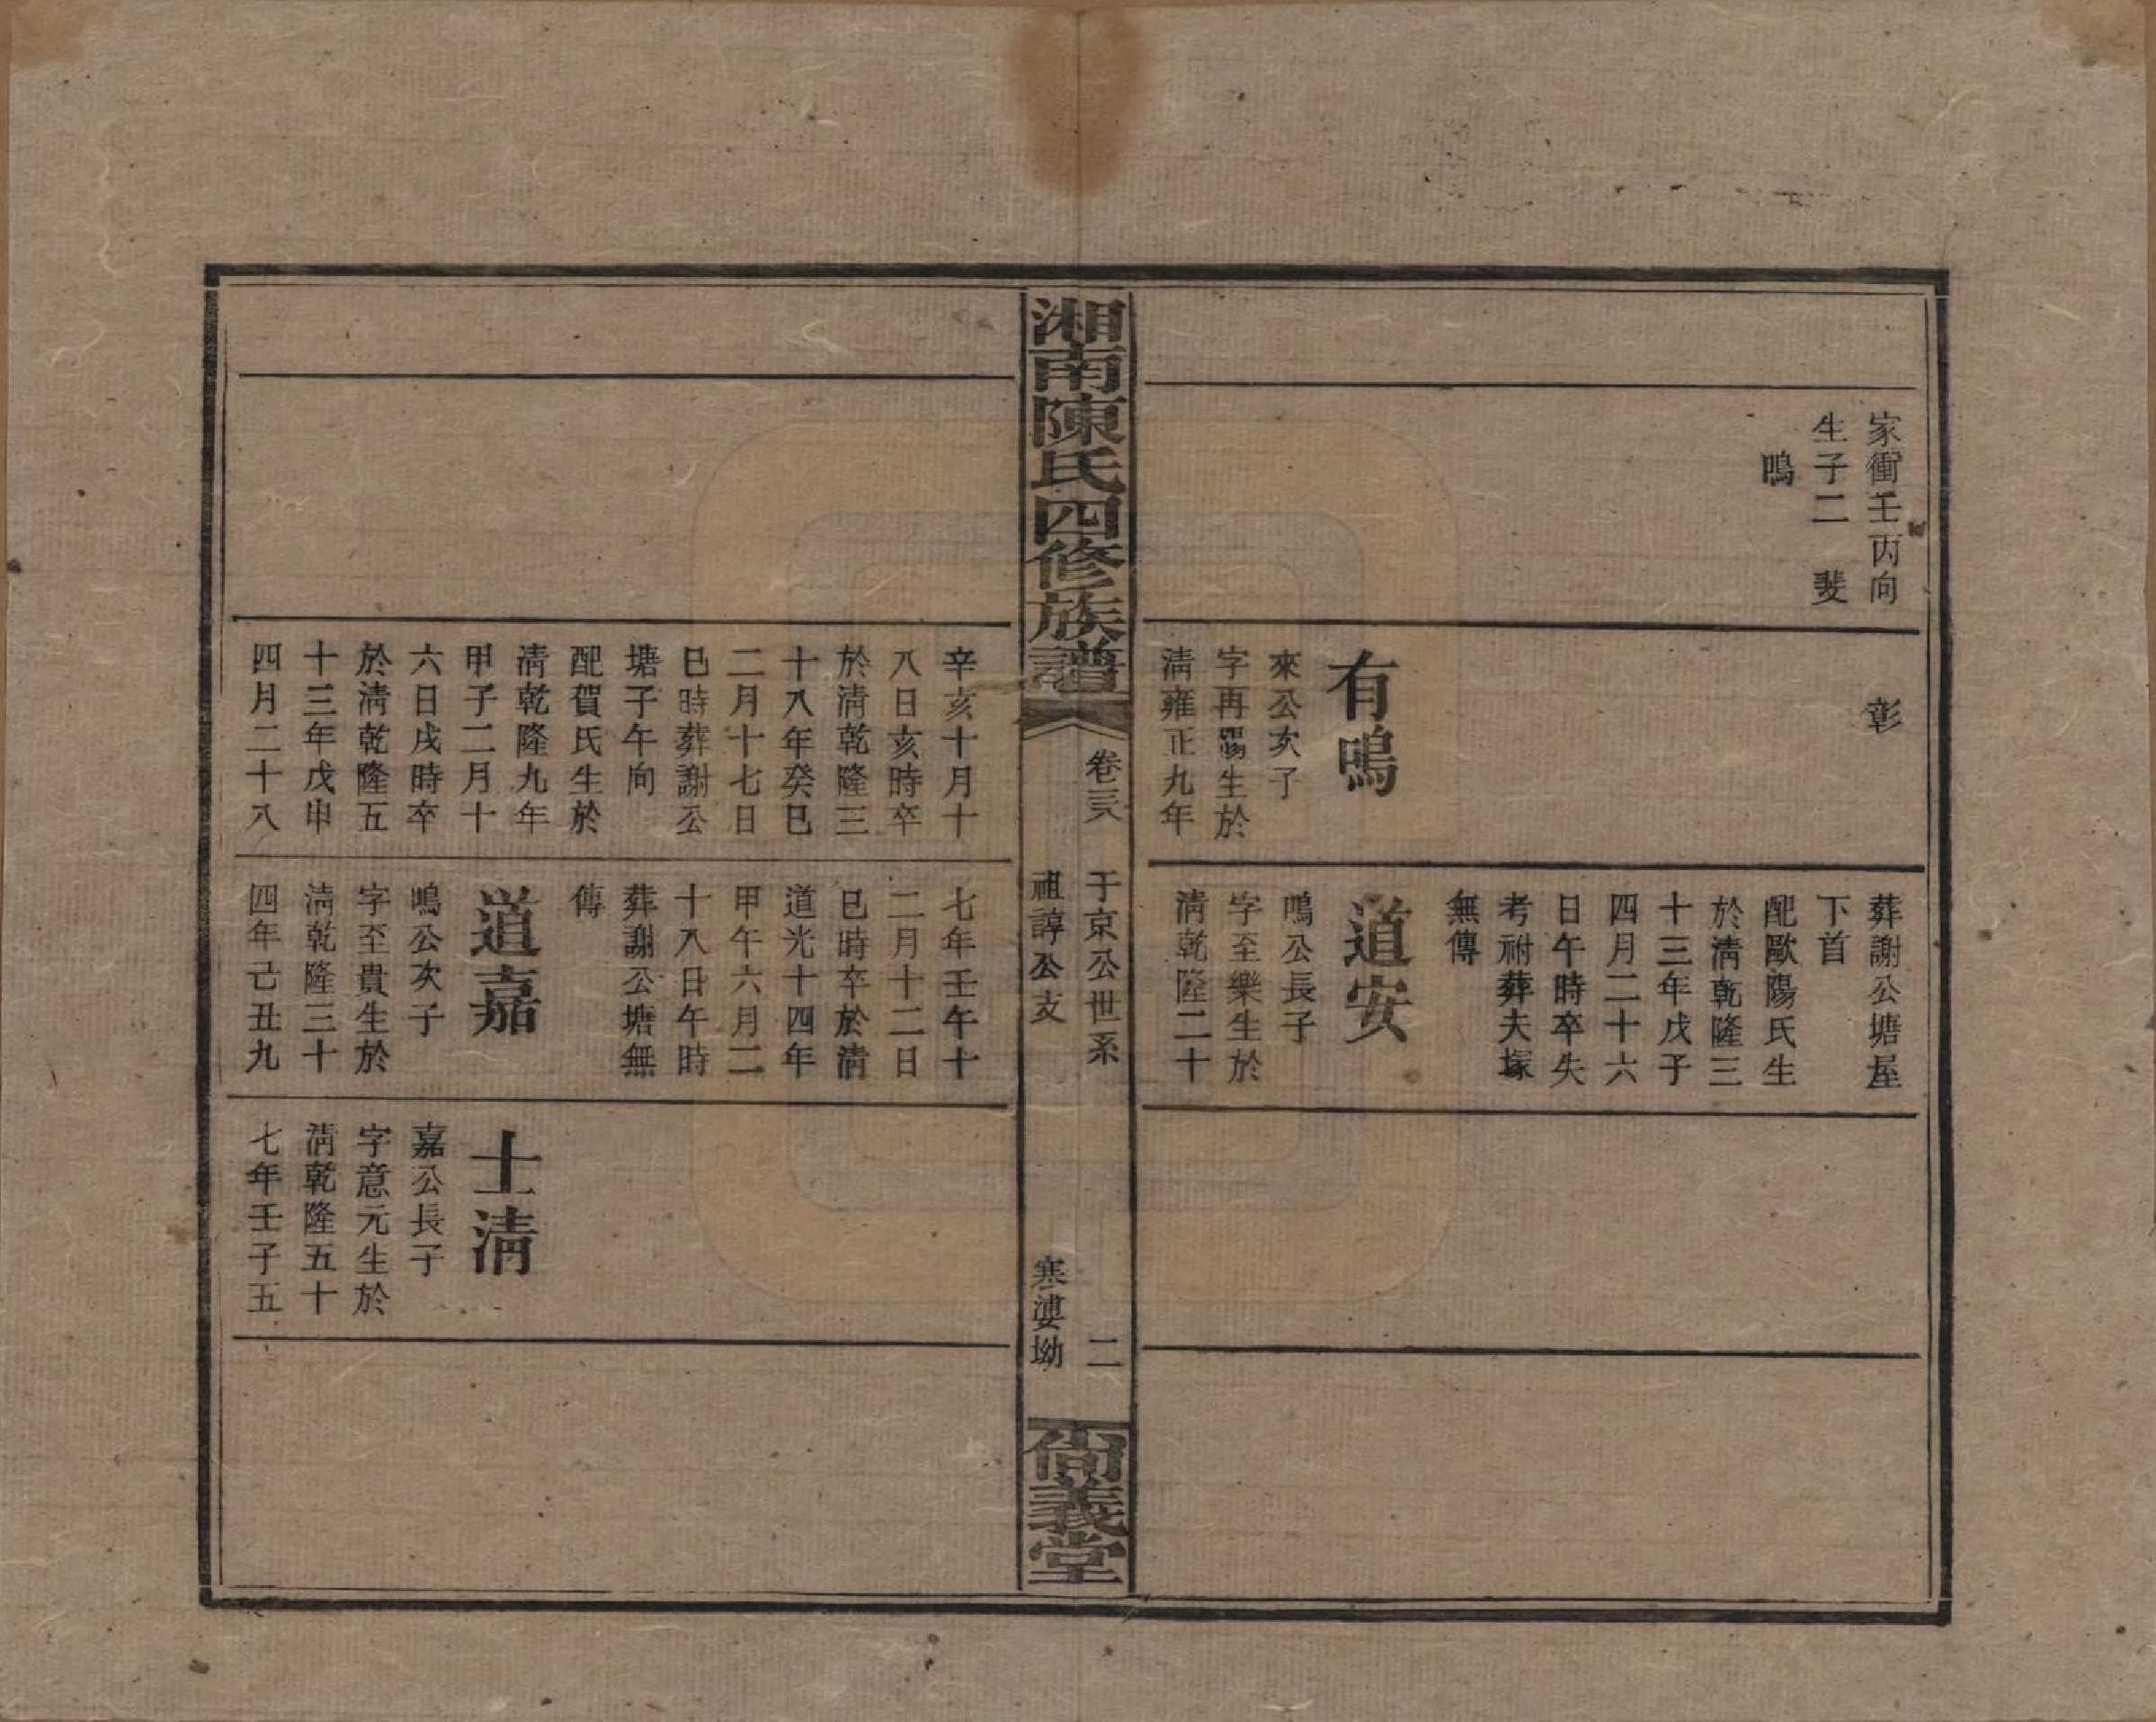 家衝壬丙向
生子二　斐
鳴
彰
有鳴
來公次子
字再暘生於
清雍正九年
葬謝公塘屋
下首
配歐陽氏生
於清乾隆三
十三年戊子
四月二十六
日午時卒失
考祔葬夫塚
無傳
道安
鳴公長子
字至樂生於
清乾隆二十
湘南陳氏四修族譜
卷三癸
于京公世系
二
祖諄公支
寒婆坳
尚義堂
辛亥十月十
八日亥時卒
於清乾隆三
十八年癸巳
二月十七日
巳時葬謝公
塘子午向
配賀氏生於
清乾隆九年
甲子二月十
六日戌時卒
於清乾隆五
十三年戊申
四月二十八
七年壬午十
二月十二日
巳時卒於清
道光十四年
甲午六月二
十八日午時
葬謝公塘無
傳
道嘉
鳴公次子
字至貴生於
清乾隆三十
四年己丑九
士清
嘉公長子
字意元生於
清乾隆五十
七年壬子五